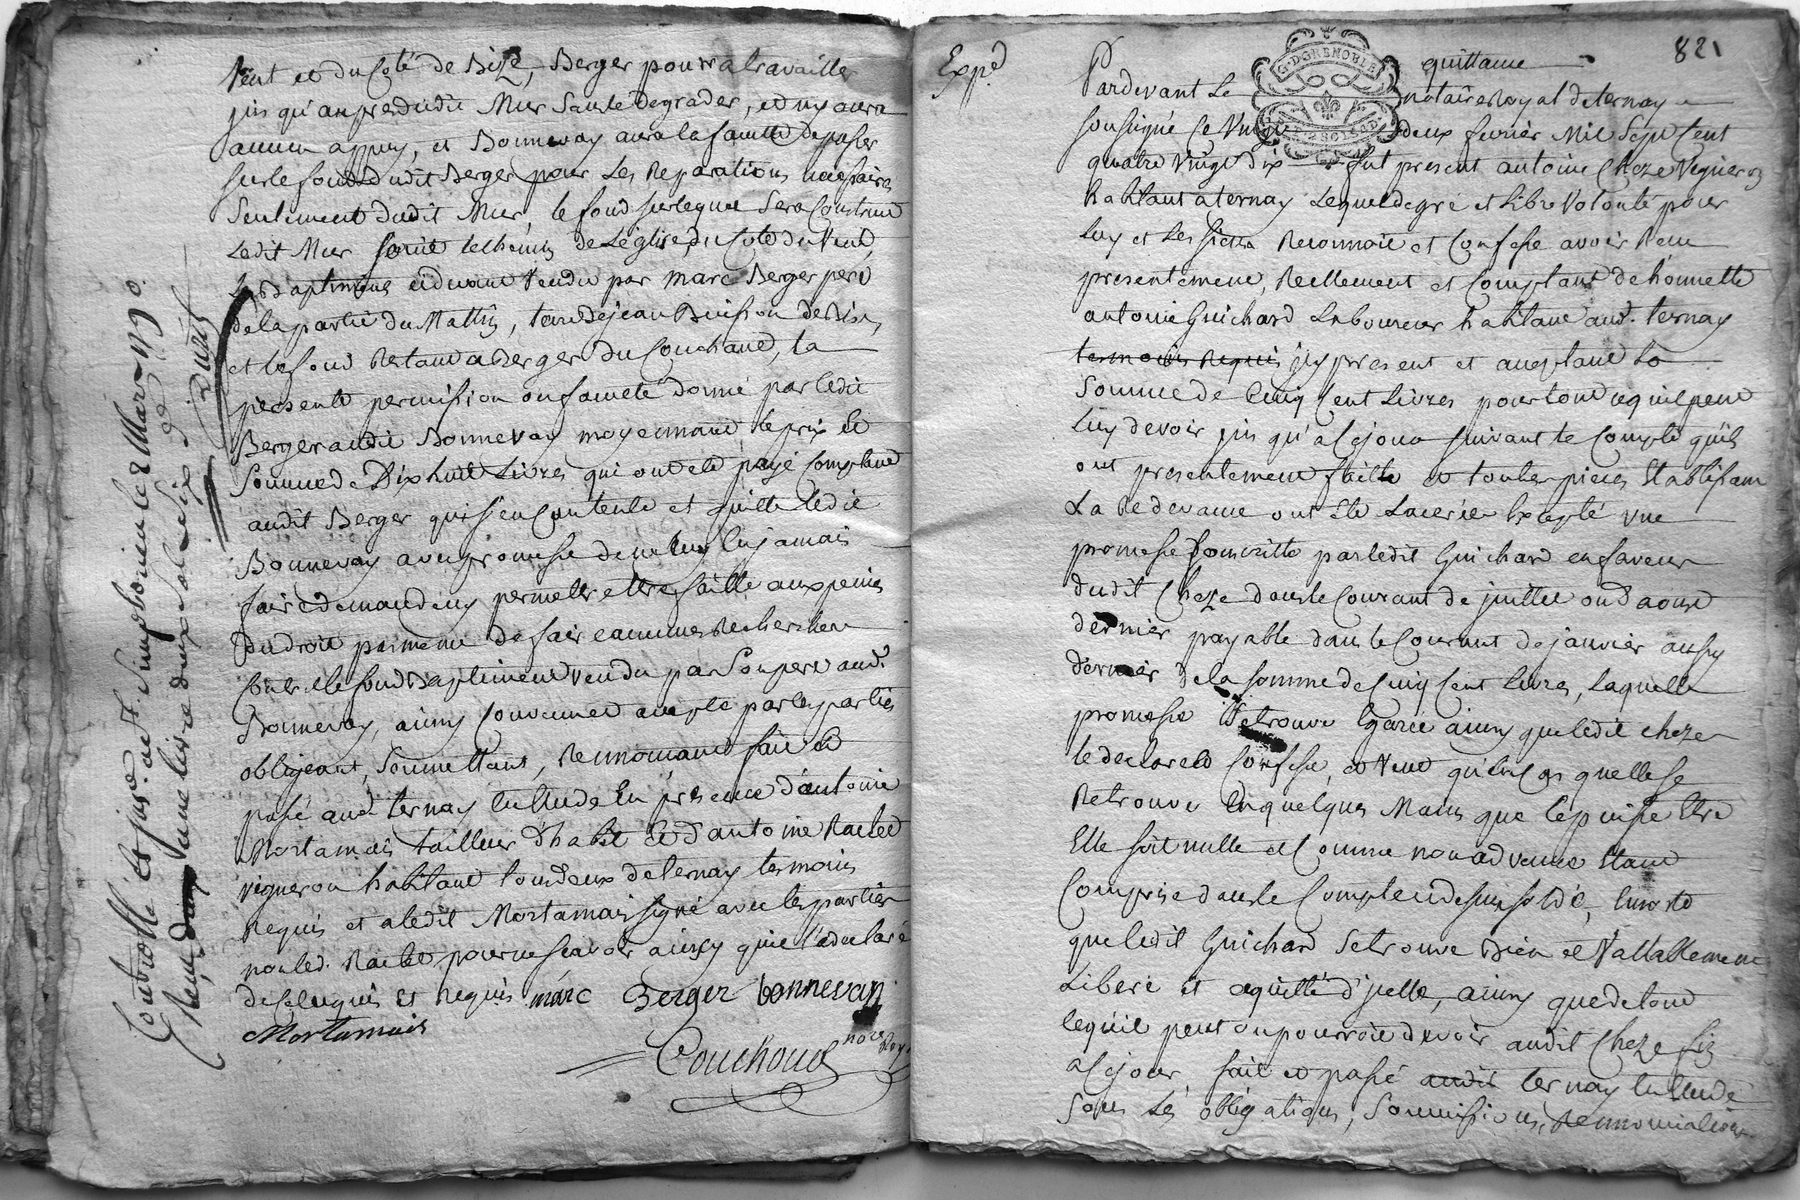 Vent et du Coté de Bize, Berger pourra travailler
jus qu'au pred dudit Mur sans le degrader, et ny aura
aucun appuy, et Bonnevay aura la faculté de passer
sur le fond dudit Berger pour Les Reparations necessaires
Seulement dudit Mur le fond sur lequel Sera Construit
Ledit Mur le chemin de Leglise, du Coté du Vent,
vendu par Marc Berger pere
de la partie du Mattin, terre de jean Buisson de Bize,
et le fond Restant a Berger du Couchant, la
presente permission ou faculté donné par ledit
Berger audit Bonnevay moyennant le prix et
Somme de Dix huit Livres qui ont eté payé Comptant
audit Berger qui s'en Contente et quitte ledit
Bonnevay avec promesse de ne luy En jamais
faire demande ny permettre etre faitte aux peines
du droit pas meme de faire aucunes Recherches
sur le fond vendu par Son pere audt
Bonnevay, ainsy Convenu et accepté par les parties
obligeant, Soumettant, Renonceant fait et
passé audt ternay Etude En presence d'antoine
Mortamais tailleur d'habit et d'antoine Raclet
vigneron habitant tous deux de ternay temoins
Requis et a ledit Mortamais signé avec les parties
non led. Raclet pour ne scavoir ainsy qu'il l'a declaré
de Ce Enquis et Requis marc Berger bonnevay
Mortamais
Couchoud nore Roy
Controllé et jnsré. a St. Simphorien le 2 Mars 1790.
Reçu une livre
Expé
821
quittance
G. D GRENOBLE
Pardevant Le notaire Royal de ternay
soussigné Ce Vingt deux fevrier Mil Sept Cent
quatre Vingt Dix fut present antoine Cheze Vigneron
habitant a ternay Lequel de gré et libre Volonté pour
Luy et Les siens Reconnoit et Confesse avoir Recu
presentement, Reellement et Comptant de honnette
antoine Guichard Laboureur habitant audt. ternay
temoins Requis jcy present et acceptant La
Somme de Cinq Cent Livres pour tout ce qu'il peut
Luy devoir jus qu'a Ce jour suivant le Compte qu'ils
ont presentement faitte et toutes pieces Etablissant
La Redevance ont Eté Lacerées Excepté une
promesse souscritte par ledit Guichard en faveur
dudit Cheze dans le Courant de juillet ou d'aoust
dernier payable dans le Courant de janvier aussy
dernier de la somme de Cinq Cent Livres, Laquelle
promesse Se trouve Egaree ainsy que ledit cheze
le declare et Confesse, et Veut qu'En Cas quelle se
Retrouve En quelques Mains que Ce puisse Etre
Elle soit nulle et Comme non advenue Etant
Comprise dans le Compte cidessus soldé, En sorte
que ledit Guichard se trouve Bien et Vallablement
Liberé et aquitté d'jcelle, ainsy que de tout
ce qu'il peut ou pourroit devoir audit Cheze
a Ce jour, fait et passé audit ternay En Etude
Sous Les obligations, Soumissions, Renonciations